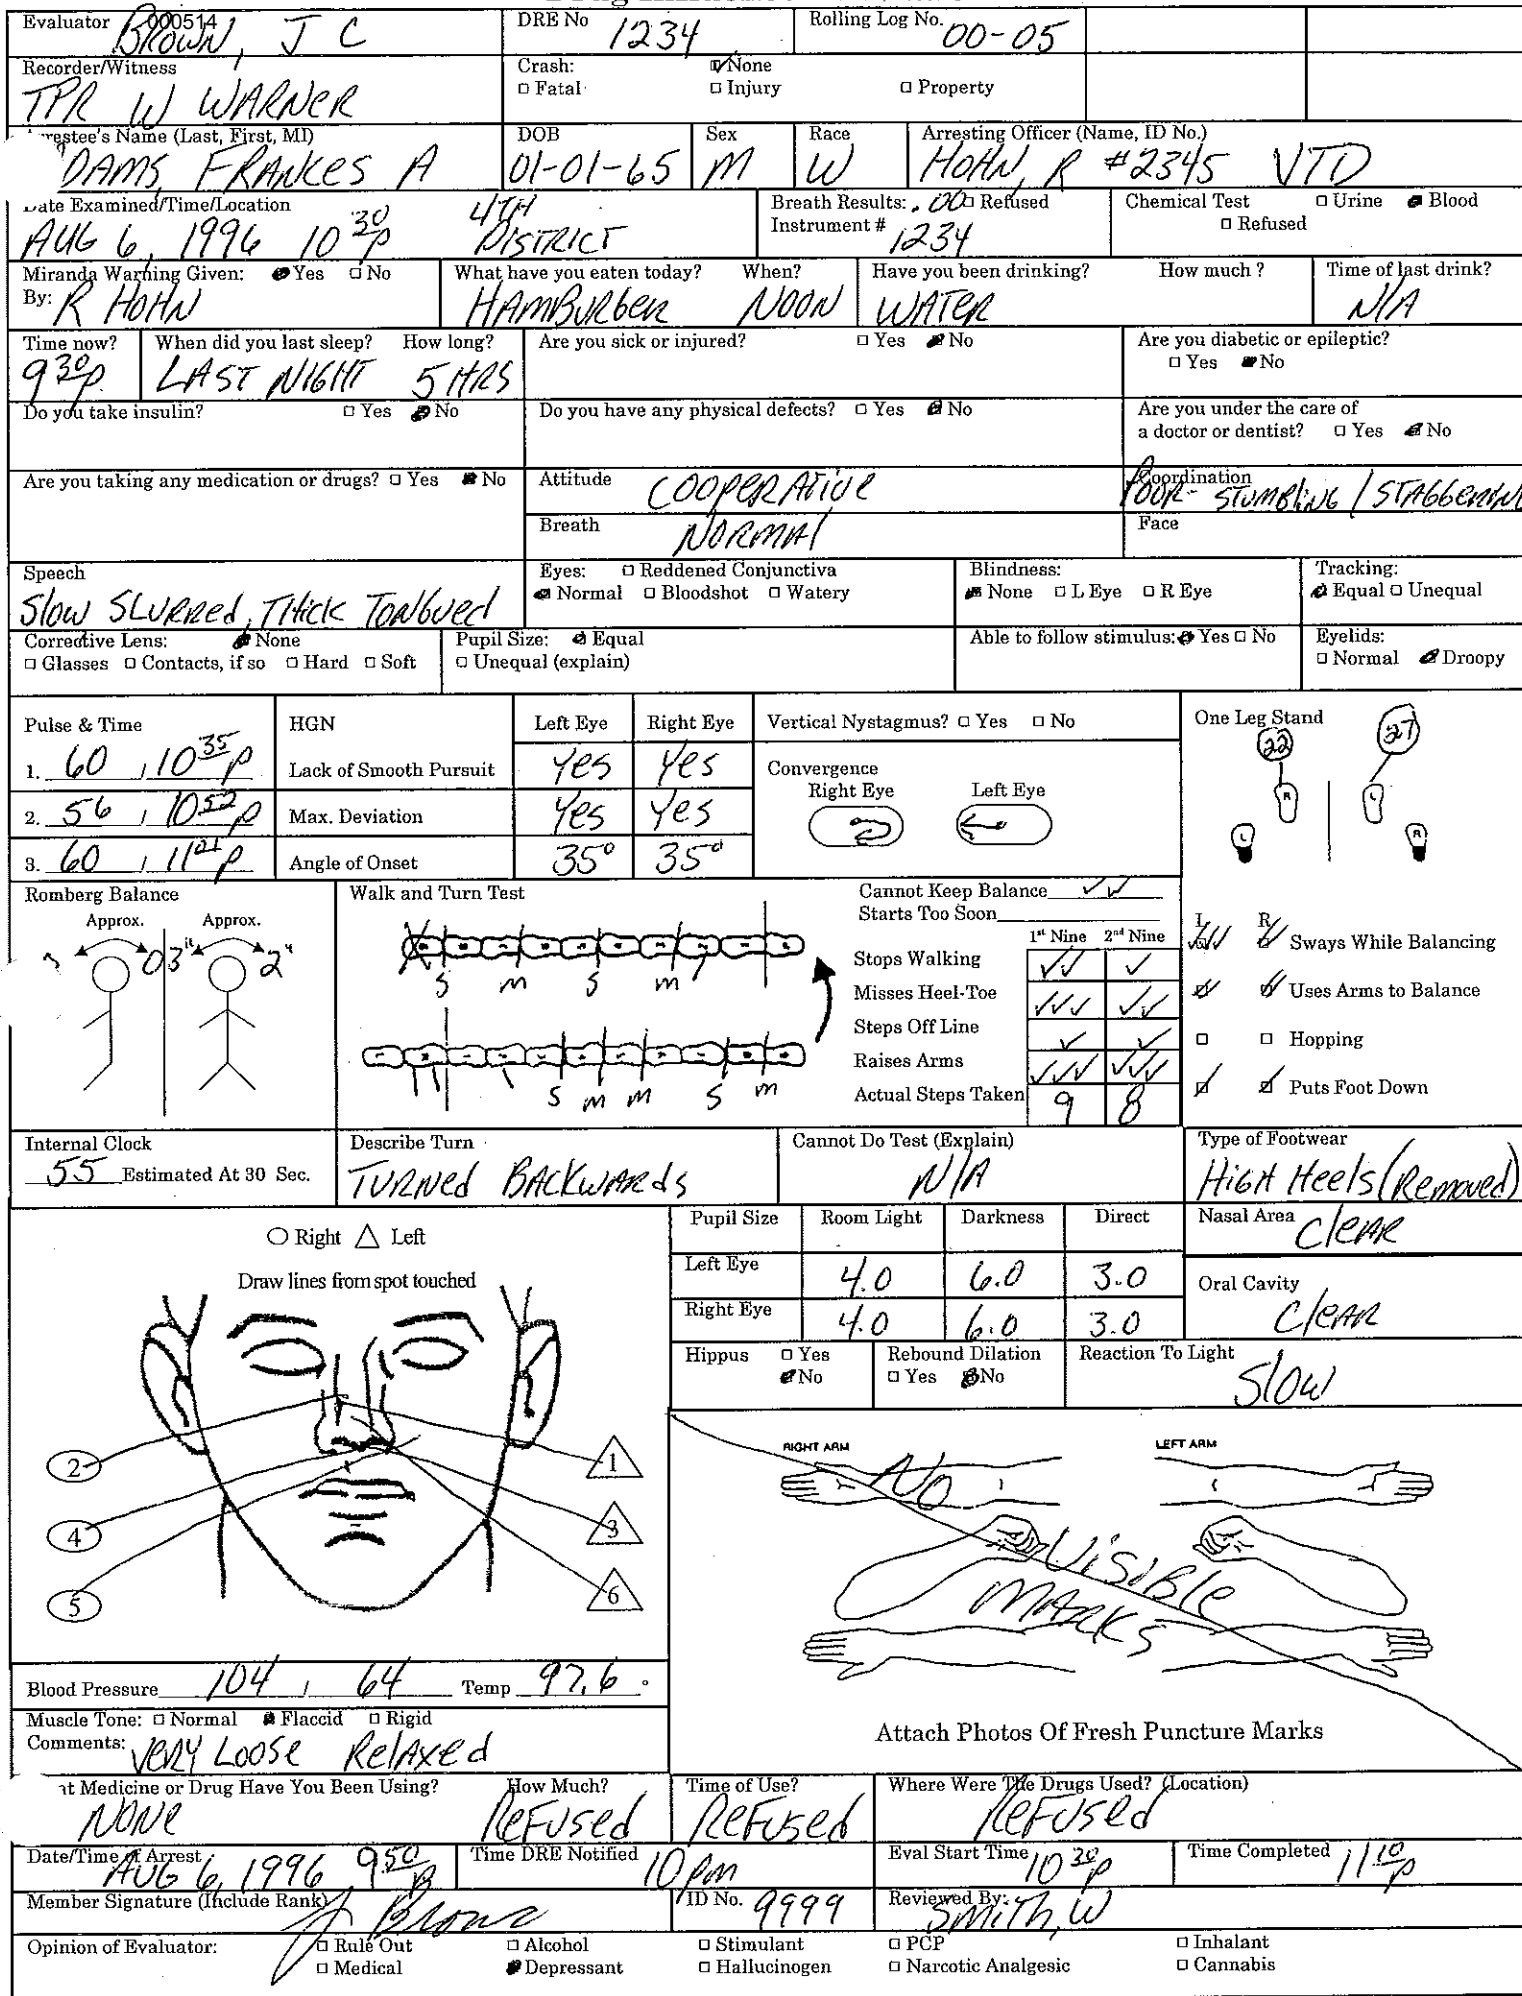 Evaluator 000514 BROWN, J C
DRE No 1234
Rolling Log No. 00-05
Recorder/Witness TPR W WARNER
Crash: None
□ Fatal □ Injury □ Property
Arrestee's Name (Last, First, MI)
DAMS, FRANCES A
DOB 01-01-65
Sex M
Race W
Arresting Officer (Name, ID No.)
HOHN, R #2345 VTD
Date Examined/Time/Location
AUG 6, 1996 10 30 p 4TH DISTRICT
Breath Results: .00 □ Refused
Instrument # 1234
Chemical Test □ Urine Blood
□ Refused
Miranda Warning Given: Yes □ No
By: R HOHN
What have you eaten today? When?
HAMBURGER NOON
Have you been drinking? How much ?
WATER
Time of last drink?
N/A
Time now?
9 30 p
When did you last sleep? How long?
LAST NIGHT 5 HRS
Are you sick or injured? □ Yes No
Are you diabetic or epileptic?
□ Yes No
Do you take insulin? □ Yes No
Do you have any physical defects? □ Yes No
Are you under the care of
a doctor or dentist? □ Yes No
Are you taking any medication or drugs? □ Yes No
Attitude COOPERATIVE
Coordination
POOR- STUMBLING / STAGGERING
Breath NORMAL
Face
Speech
Slow SLURRed, THICK TONGUED
Eyes: □ Reddened Conjunctiva
Normal □ Bloodshot □ Watery
Blindness:
None □ L Eye □ R Eye
Tracking:
Equal □ Unequal
Corrective Lens: None
□ Glasses □ Contacts, if so □ Hard □ Soft
Pupil Size: Equal
□ Unequal (explain)
Able to follow stimulus: Yes □ No
Eyelids:
□ Normal Droopy
Pulse & Time
1. 60 / 10 35 p
2. 56 / 10 52 p
3. 60 / 11 p
HGN Left Eye Right Eye
Lack of Smooth Pursuit Yes Yes
Max. Deviation Yes Yes
Angle of Onset 35° 35°
Vertical Nystagmus? □ Yes □ No
Convergence
Right Eye Left Eye
One Leg Stand
22 27
R L
L R
Romberg Balance
Approx. Approx.
3 03" 2"
Walk and Turn Test
S M S M
S M M S M
Cannot Keep Balance ✓✓
Starts Too Soon
1st Nine 2nd Nine
Stops Walking ✓✓ ✓
Misses Heel-Toe ✓✓✓ ✓✓
Steps Off Line ✓ ✓
Raises Arms ✓✓✓ ✓✓✓
Actual Steps Taken 9 8
L R
Sways While Balancing
Uses Arms to Balance
□ □ Hopping
Puts Foot Down
Internal Clock
55 Estimated At 30 Sec.
Describe Turn
TURNed BACKWARds
Cannot Do Test (Explain)
N/A
Type of Footwear
HIGH Heels (Removed)
○ Right △ Left
Draw lines from spot touched
2 1
4 3
5 6
Pupil Size Room Light Darkness Direct
Left Eye 4.0 6.0 3.0
Right Eye 4.0 6.0 3.0
Nasal Area CleAR
Oral Cavity
CleAR
Hippus □ Yes
No
Rebound Dilation
□ Yes No
Reaction To Light
Slow
RIGHT ARM LEFT ARM
NO
VISIBLE
MARKS
Attach Photos Of Fresh Puncture Marks
Blood Pressure 104 / 64 Temp 97.6 °
Muscle Tone: □ Normal Flaccid □ Rigid
Comments: VERY LOOSE RelAxed
nt Medicine or Drug Have You Been Using?
NONE
How Much?
ReFused
Time of Use?
ReFused
Where Were The Drugs Used? (Location)
ReFused
Date/Time of Arrest
AUG 6, 1996 9 50 p
Time DRE Notified 10 pm
Eval Start Time 10 30 p
Time Completed 11 10 p
Member Signature (Include Rank)
J Brown
ID No. 9999
Reviewed By:
SMITH, W
Opinion of Evaluator: □ Rule Out □ Alcohol □ Stimulant □ PCP □ Inhalant
□ Medical Depressant □ Hallucinogen □ Narcotic Analgesic □ Cannabis